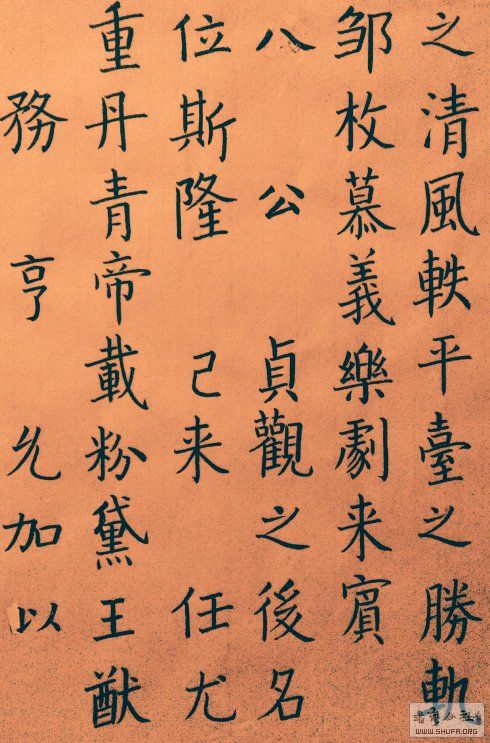 之清風軼平臺之勝軌
邹枚慕義樂劇来賓
八公貞觀之後名
位斯隆己来任尤
重丹青帝載粉黛王猷
務亨允加以
WWW.SHUFA.ORG